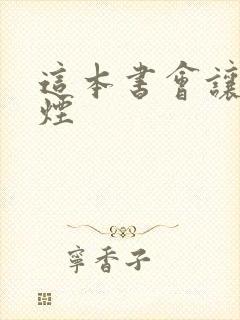 這本書會讓
煙
寧香子